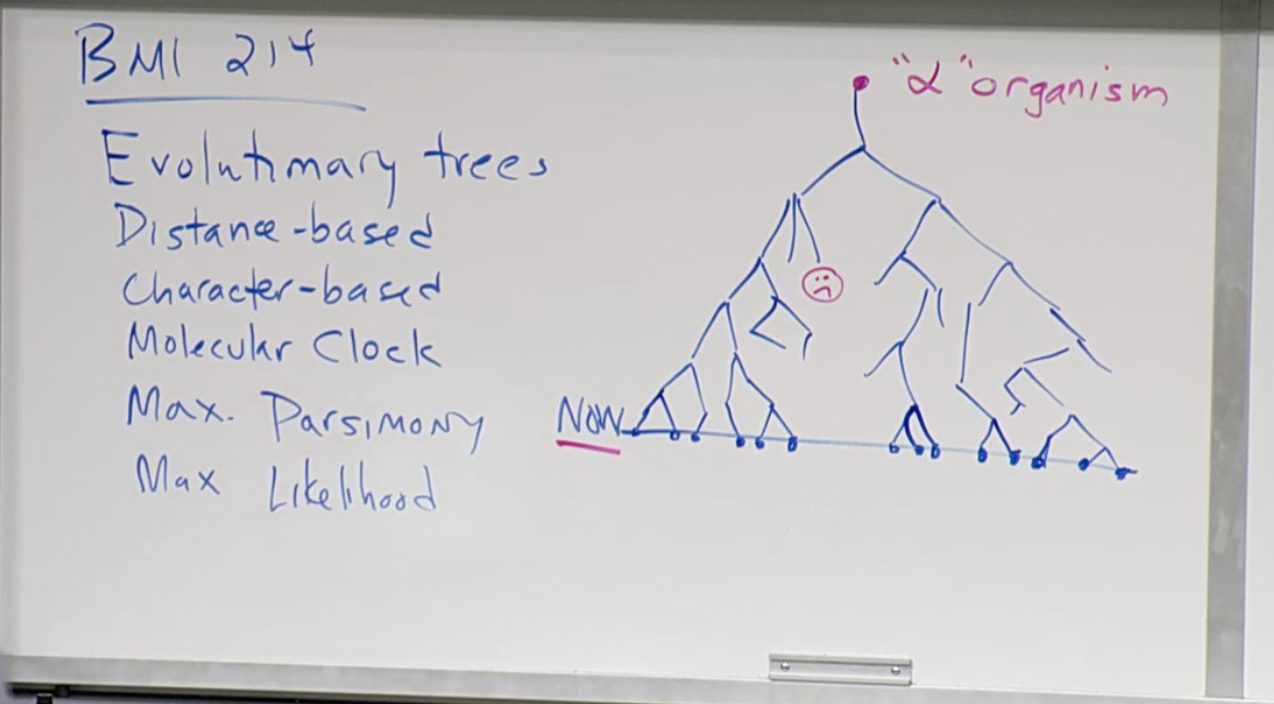 BMI 214
Evolutionary trees
Distance-based
Character-based
Molecular Clock
Max. Parsimony
Max Likelihood
"α" organism
Now